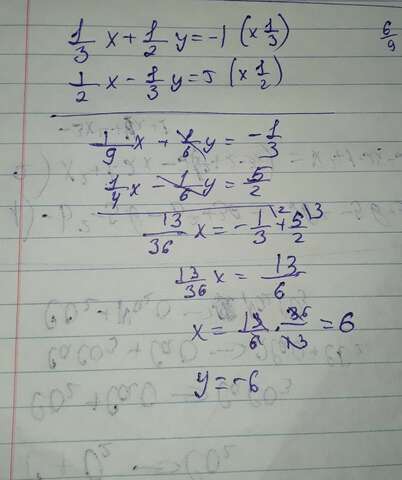 1/3 x + 1/2 y = -1 (× 1/3)
6/9
1/2 x - 1/3 y = 5 (× 1/2)
1/9 x + 1/6 y = -1/3
1/4 x - 1/6 y = 5/2
13/36 x = -1/3 \2 + 5/2 \3
13/36 x = 13/6
x = 13/6 · 36/13 = 6
y = -6